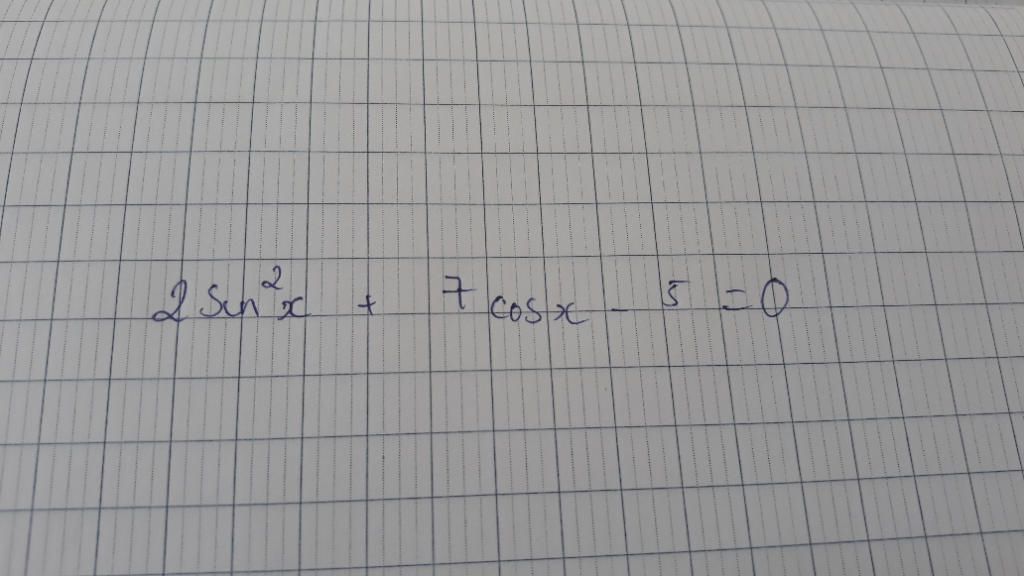 2 sin²x + 7 cos x - 5 = 0